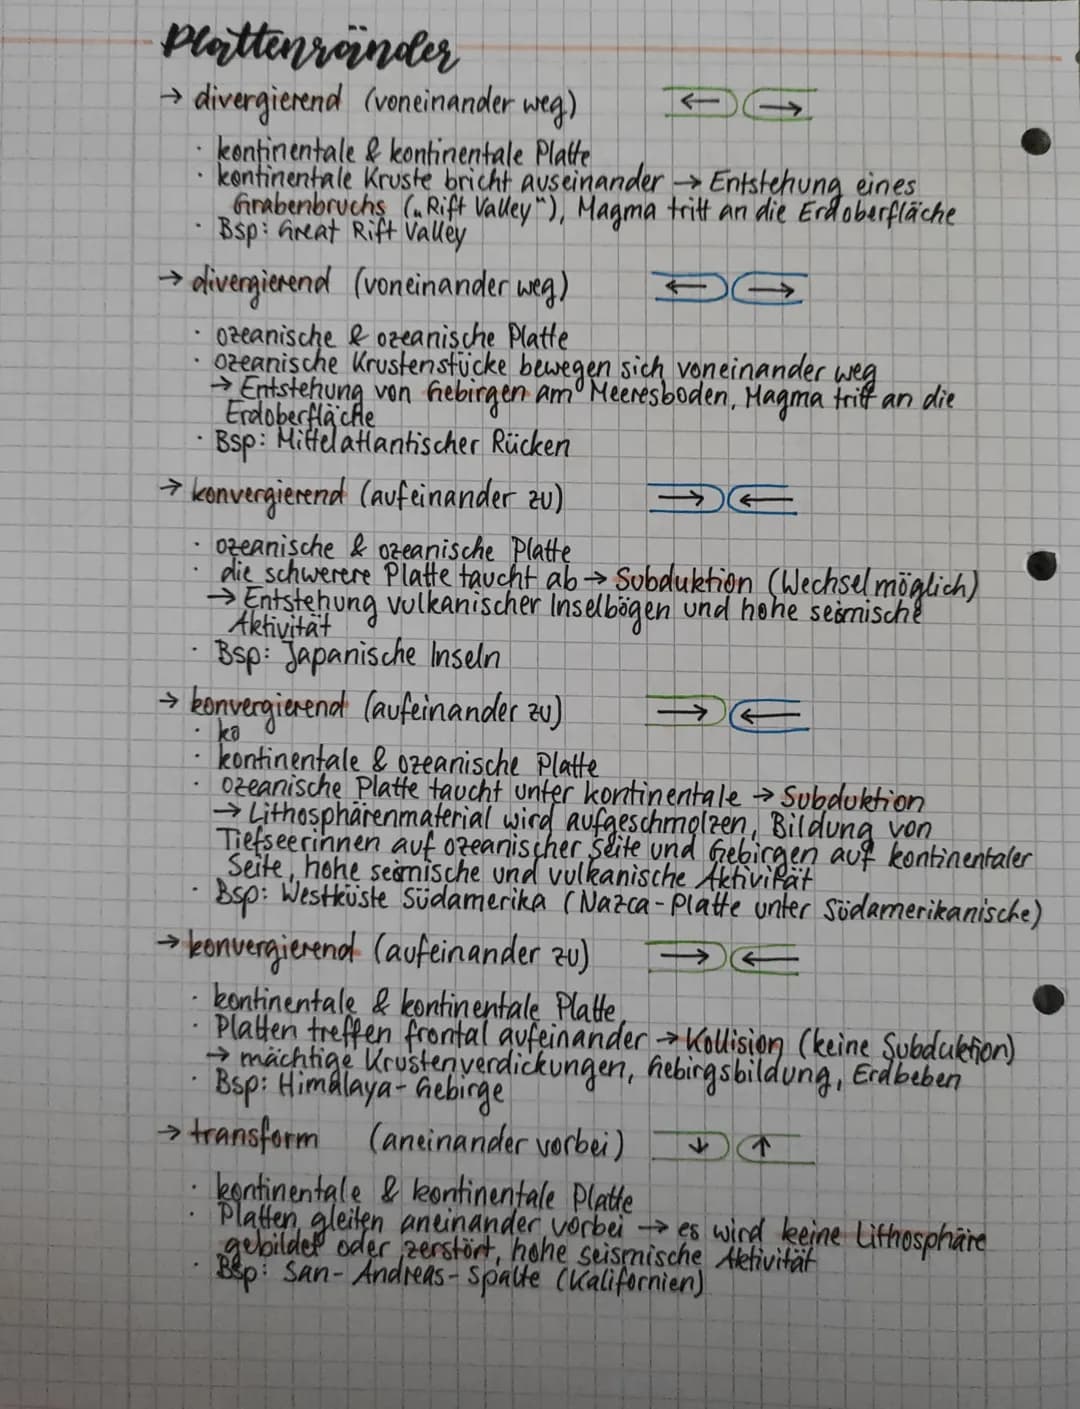 Plattenränder
→ divergierend (voneinander weg) ← →
· kontinentale & kontinentale Platte
· kontinentale Kruste bricht auseinander → Entstehung eines
Grabenbruchs („Rift Valley"), Magma tritt an die Erdoberfläche
· Bsp: Great Rift Valley
→ divergierend (voneinander weg) ← →
· ozeanische & ozeanische Platte
· ozeanische Krustenstücke bewegen sich voneinander weg
→ Entstehung von Gebirgen am Meeresboden, Magma tritt an die
Erdoberfläche
· Bsp: Mittelatlantischer Rücken
→ konvergierend (aufeinander zu) → ←
· ozeanische & ozeanische Platte
· die schwerere Platte taucht ab → Subduktion (Wechsel möglich)
→ Entstehung vulkanischer Inselbögen und hohe seismische
Aktivität
· Bsp: Japanische Inseln
→ konvergierend (aufeinander zu) → ←
· ko
· kontinentale & ozeanische Platte
· ozeanische Platte taucht unter kontinentale → Subduktion
→ Lithosphärenmaterial wird aufgeschmolzen, Bildung von
Tiefseerinnen auf ozeanischer Seite und Gebirgen auf kontinentaler
Seite, hohe seismische und vulkanische Aktivität
· Bsp: Westküste Südamerika (Nazca-Platte unter Südamerikanische)
→ konvergierend (aufeinander zu) → ←
· kontinentale & kontinentale Platte
· Platten treffen frontal aufeinander → Kollision (keine Subduktion)
→ mächtige Krustenverdickungen, Gebirgsbildung, Erdbeben
· Bsp: Himalaya-Gebirge
→ transform (aneinander vorbei) ↓ ↑
· kontinentale & kontinentale Platte
· Platten gleiten aneinander vorbei → es wird keine Lithosphäre
gebildet oder zerstört, hohe seismische Aktivität
· Bsp: San-Andreas-Spalte (Kalifornien)